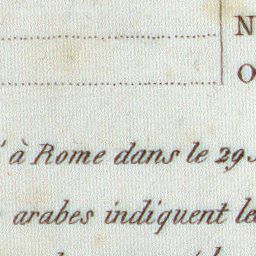 N
O
à Rome dans le 29
arabes indiquent le